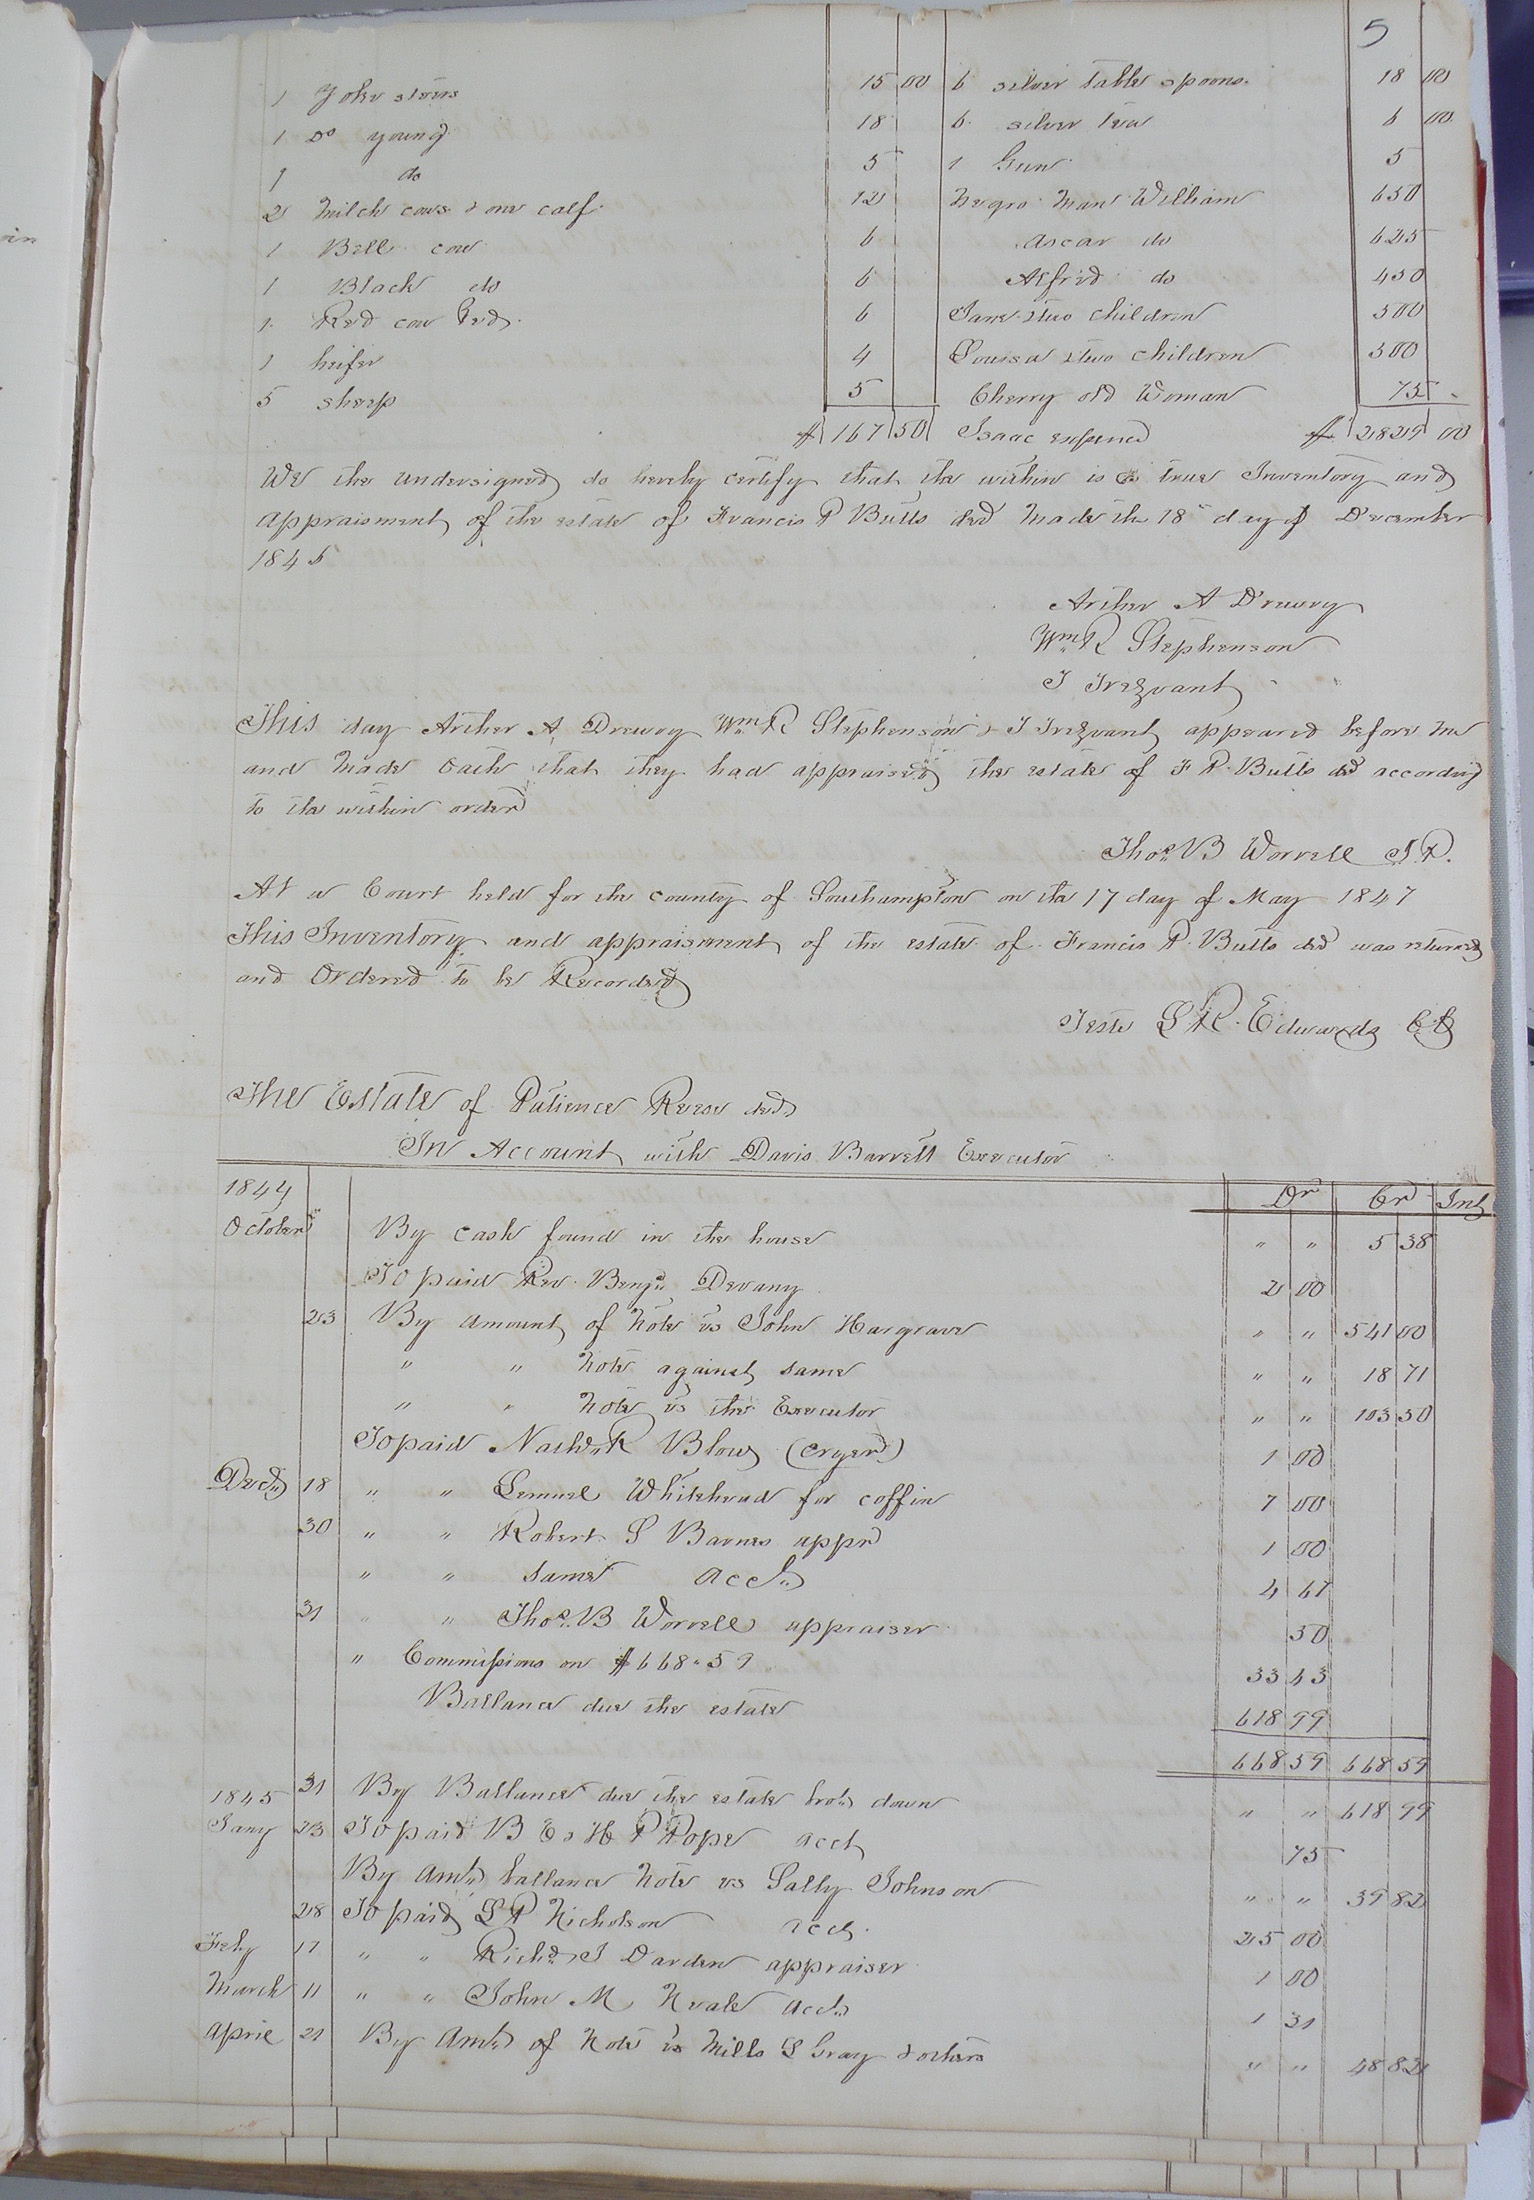 5
1 Yoke steers 15 00 6 silver table spoons 18 00
1 Do young 18 6 silver tea 6 00
1 do 5 1 Gun 5
2 Milch cows & one calf 12 Negro Man William 650
1 Bell cow 6 Ascar do 625
1 Black do 6 Alfred do 450
1 Red cow 6 Jane & two children 500
1 heifer 4 Louisa & two children 500
5 sheep 5 Cherry old Woman 75
$ 167 50 Isaac $ 2829 00
We the undersigned do hereby certify that the within is a true Inventory and
appraisment of the estate of Francis P Butts decd Made the 18th day of December
1845
Archer A Drewry
Wm R Stephenson
J Trezvant
This day Archer A Drewry Wm R Stephenson & J Trezvant appeared before me
and Made Oath that they had appraised the estate of F P Butts decd according
to the within order
Thos B Worrell J.P.
At a Court held for the county of Southampton on the 17 day of May 1847
This Inventory and appraisment of the estate of Francis P Butts decd was returned
and Ordered to be Recorded
Teste L R Edwards CC
The Estate of Patience Reese decd
In Account with Davis Barrett Executor
1844 Dr Cr Int
October By cash found in the house " " 5 38
To paid Rev. Benjn Devany 2 00
23 By amount of Note vs John Hargrave " " 541 00
" " Note against same " " 18 71
" " Note vs the Executor " " 103 50
To paid R Blow (cryer) 1 00
Decr 18 " " Lemuel Whitehead for coffin 7 00
30 " " Robert S Barnes appr 1 00
" " same acct 4 67
31 " " Thos B Worrell appraiser 50
" Commissions on $668.59 33 43
Ballance due the estate 618 99
668 59 668 59
31 By Ballance due the estate brot down " " 618 99
1845
Jany 23 To paid B E & H P Pope acct 75
By Amt ballance Note vs Sally Johnson " " 39 82
28 To paid L P Nicholson acct 25 00
Feby 17 " " Richd J Darden appraiser 1 00
March 11 " " John M Neale acct 1 31
April 21 By Amt of Note vs Mills L Gray & others " " 48 82